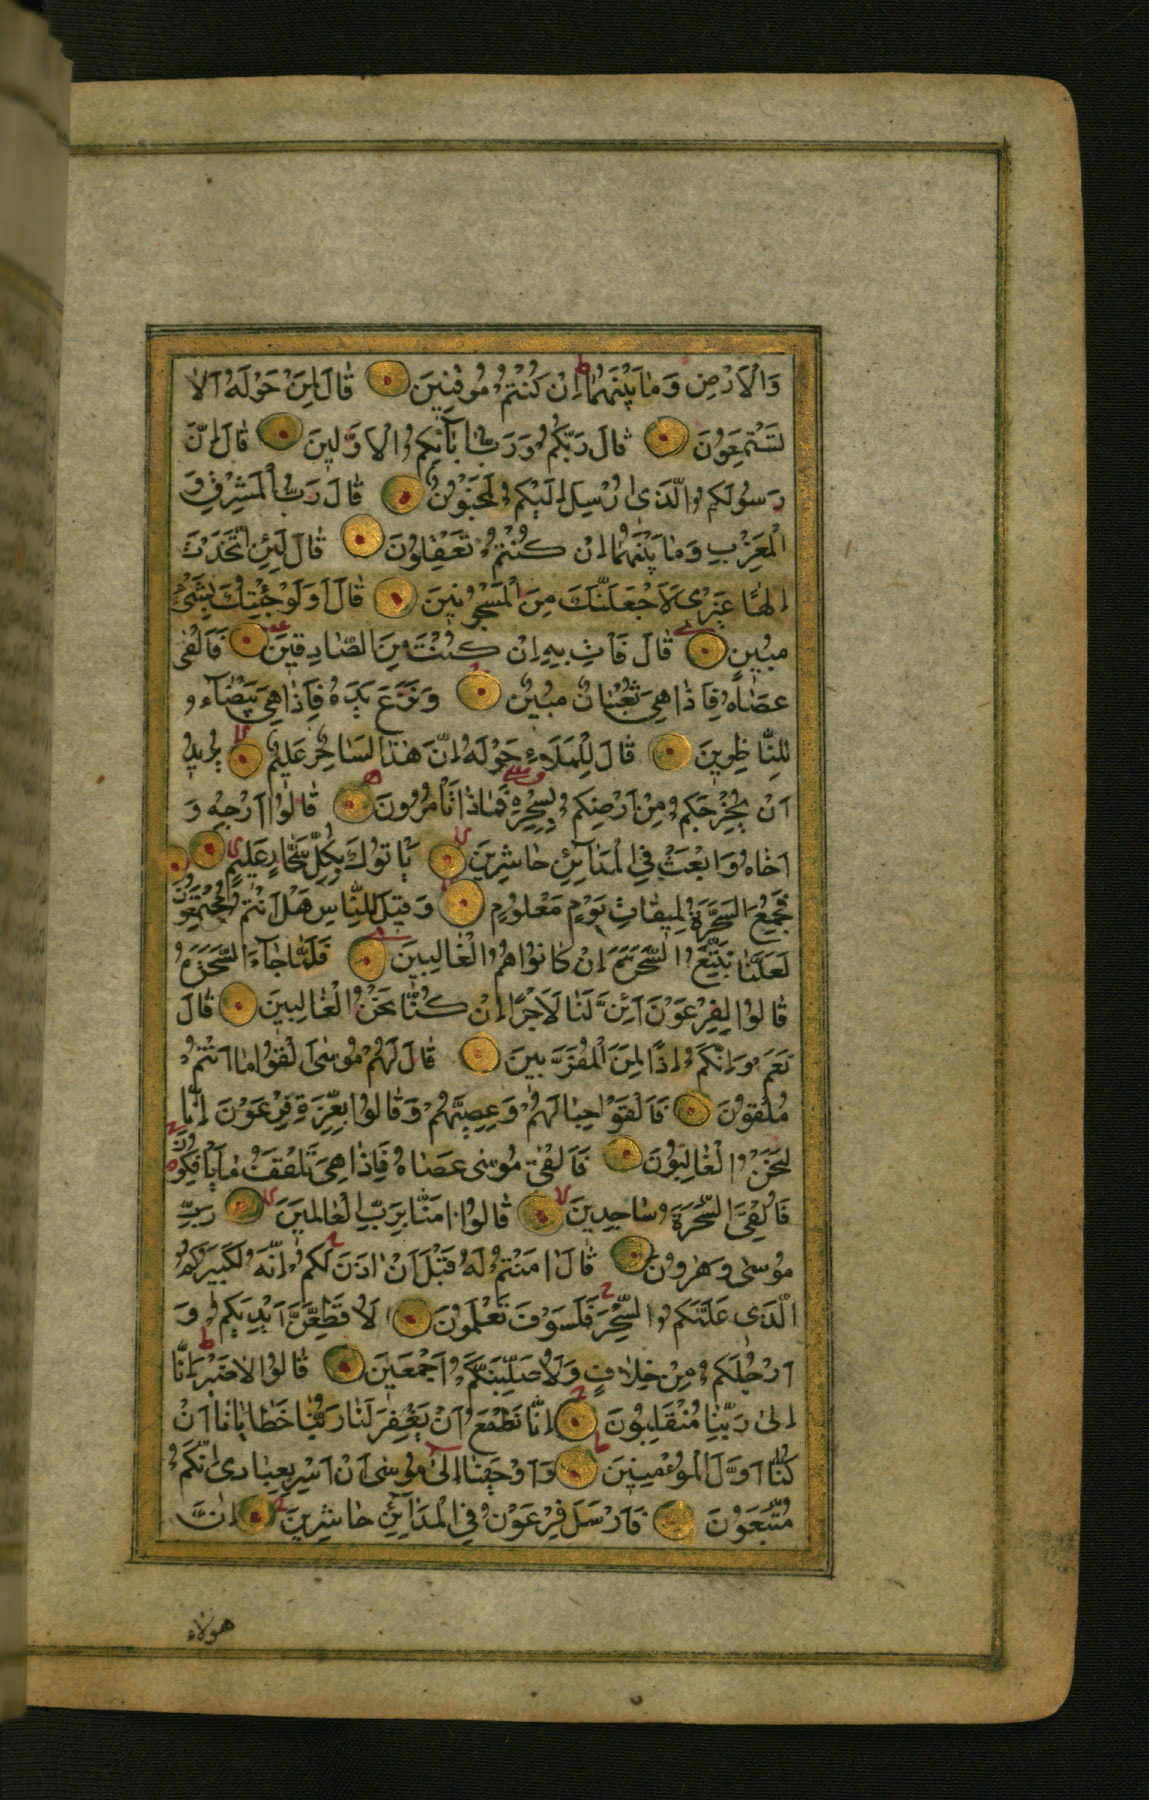 وَالْاَرْضِ وَمٰا بَيْنَهُمٰا اِنْ كُنْتُمْ مُوقِنِينَ قٰالَ لِمَنْ حَوْلَهُ اَلٰا
تَسْتَمِعُونَ قٰالَ رَبُّكُمْ وَرَبُّ اٰبٰآئِكُمُ الْاَوَّلِينَ قٰالَ اِنَّ
رَسُولَكُمُ الَّذِى اُرْسِلَ اِلَيْكُمْ لَمَجْنُونٌ قٰالَ رَبُّ الْمَشْرِقِ وَ
الْمَغْرِبِ وَمٰا بَيْنَهُمٰا اِنْ كُنْتُمْ تَعْقِلُونَ قٰالَ لَئِنِ اتَّخَذْتَ
اِلٰهًا غَيْرِى لَاَجْعَلَنَّكَ مِنَ الْمَسْجُونِينَ قٰالَ اَوَلَوْ جِئْتُكَ بِشَىْءٍ
مُبِينٍ قٰالَ فَاْتِ بِهِ اِنْ كُنْتَ مِنَ الصّٰادِقِينَ فَاَلْقٰى
عَصٰاهُ فَاِذٰا هِىَ ثُعْبٰانٌ مُبِينٌ وَنَزَعَ يَدَهُ فَاِذٰا هِىَ بَيْضٰآءُ
لِلنّٰاظِرِينَ قٰالَ لِلْمَلَاءِ حَوْلَهُ اِنَّ هٰذٰا لَسٰاحِرٌ عَلِيمٌ يُرِيدُ
اَنْ يُخْرِجَكُمْ مِنْ اَرْضِكُمْ بِسِحْرِهِ فَمٰاذٰا تَاْمُرُونَ قٰالُوا اَرْجِهْ وَ
اَخٰاهُ وَابْعَثْ فِى الْمَدٰآئِنِ حٰاشِرِينَ يَاْتُوكَ بِكُلِّ سَحّٰارٍ عَلِيمٍ
فَجُمِعَ السَّحَرَةُ لِمِيقٰاتِ يَوْمٍ مَعْلُومٍ وَقِيلَ لِلنّٰاسِ هَلْ اَنْتُمْ مُجْتَمِعُونَ
لَعَلَّنٰا نَتَّبِعُ السَّحَرَةَ اِنْ كٰانُوا هُمُ الْغٰالِبِينَ فَلَمّٰا جٰآءَ السَّحَرَةُ
قٰالُوا لِفِرْعَوْنَ اَئِنَّ لَنٰا لَاَجْرًا اِنْ كُنّٰا نَحْنُ الْغٰالِبِينَ قٰالَ
نَعَمْ وَاِنَّكُمْ اِذًا لَمِنَ الْمُقَرَّبِينَ قٰالَ لَهُمْ مُوسٰى اَلْقُوا مٰا اَنْتُمْ
مُلْقُونَ فَاَلْقَوْا حِبٰالَهُمْ وَعِصِيَّهُمْ وَقٰالُوا بِعِزَّةِ فِرْعَوْنَ اِنّٰا
لَنَحْنُ الْغٰالِبُونَ فَاَلْقٰى مُوسٰى عَصٰاهُ فَاِذٰا هِىَ تَلْقَفُ مٰا يَاْفِكُونَ
فَاُلْقِىَ السَّحَرَةُ سٰاجِدِينَ قٰالُوا اٰمَنّٰا بِرَبِّ الْعٰالَمِينَ رَبِّ
مُوسٰى وَهٰرُونَ قٰالَ اٰمَنْتُمْ لَهُ قَبْلَ اَنْ اٰذَنَ لَكُمْ اِنَّهُ لَكَبِيرُكُمُ
الَّذِى عَلَّمَكُمُ السِّحْرَ فَلَسَوْفَ تَعْلَمُونَ لَاُقَطِّعَنَّ اَيْدِيَكُمْ وَ
اَرْجُلَكُمْ مِنْ خِلٰافٍ وَلَاُصَلِّبَنَّكُمْ اَجْمَعِينَ قٰالُوا لٰا ضَيْرَ اِنّٰا
اِلٰى رَبِّنٰا مُنْقَلِبُونَ اِنّٰا نَطْمَعُ اَنْ يَغْفِرَ لَنٰا رَبُّنٰا خَطٰايٰانٰا اَنْ
كُنّٰا اَوَّلَ الْمُؤْمِنِينَ وَاَوْحَيْنٰا اِلٰى مُوسٰى اَنْ اَسْرِ بِعِبٰادِى اِنَّكُمْ
مُتَّبَعُونَ فَاَرْسَلَ فِرْعَوْنُ فِى الْمَدٰآئِنِ حٰاشِرِينَ اِنَّ
هؤلاء